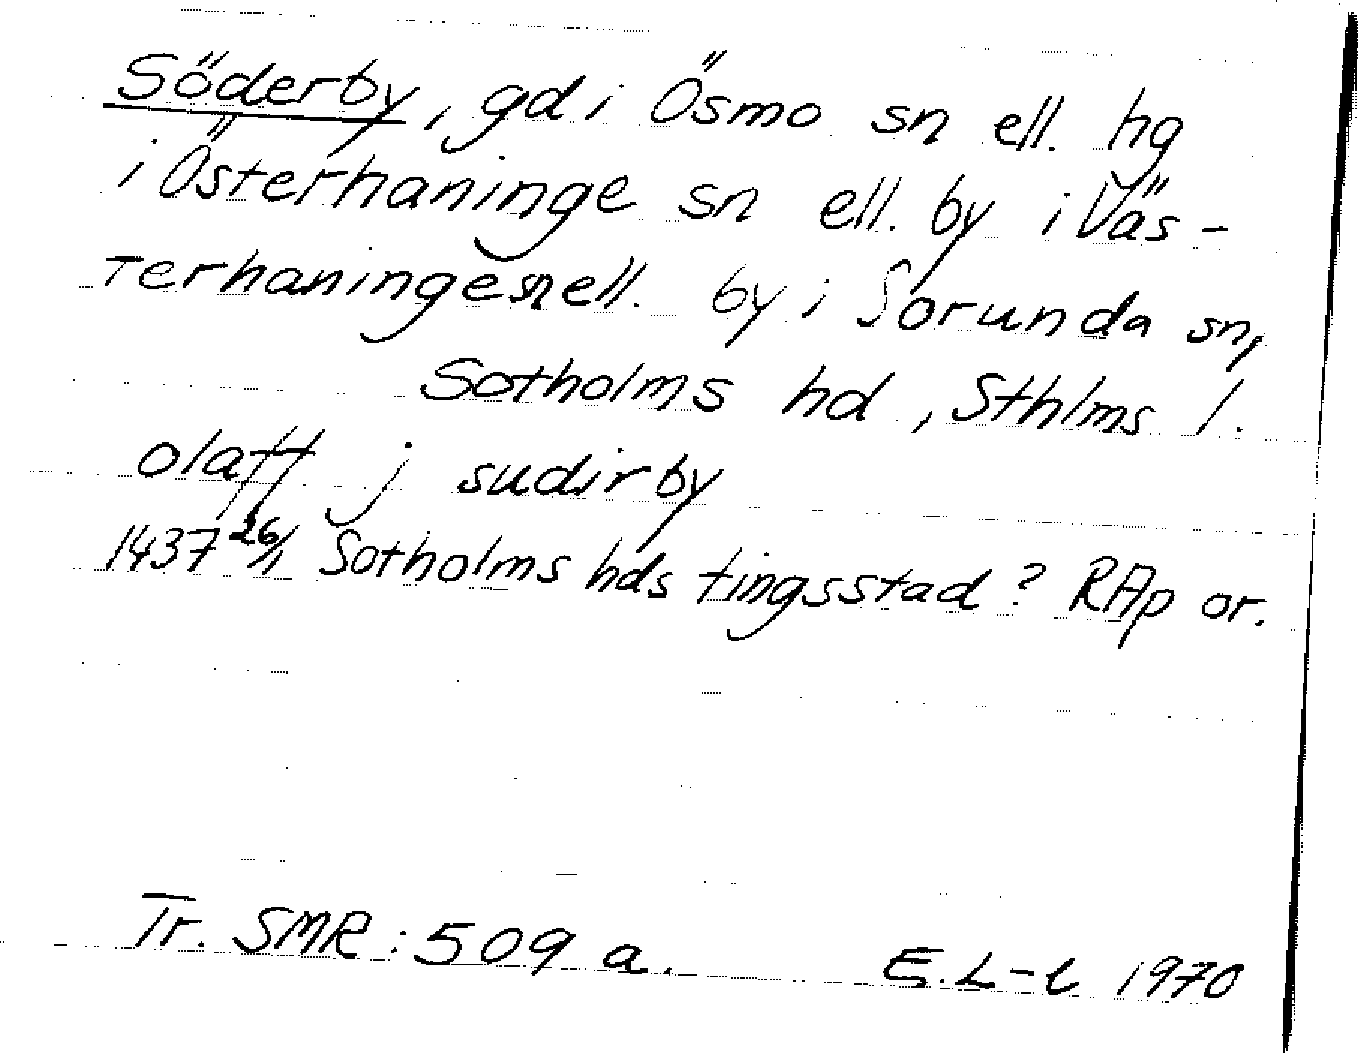 Söderby, gd i Ösmo sn ell. hg
i Österhaninge sn ell. by i Väs-
terhaninge sn ell. by i Sorunda sn,
Sotholms hd, Sthlms l.
olaff j sudirby
1437 26/1 Sotholms hds tingsstad? RAp or.
Tr. SMR: 509 a. E.L-l 1970